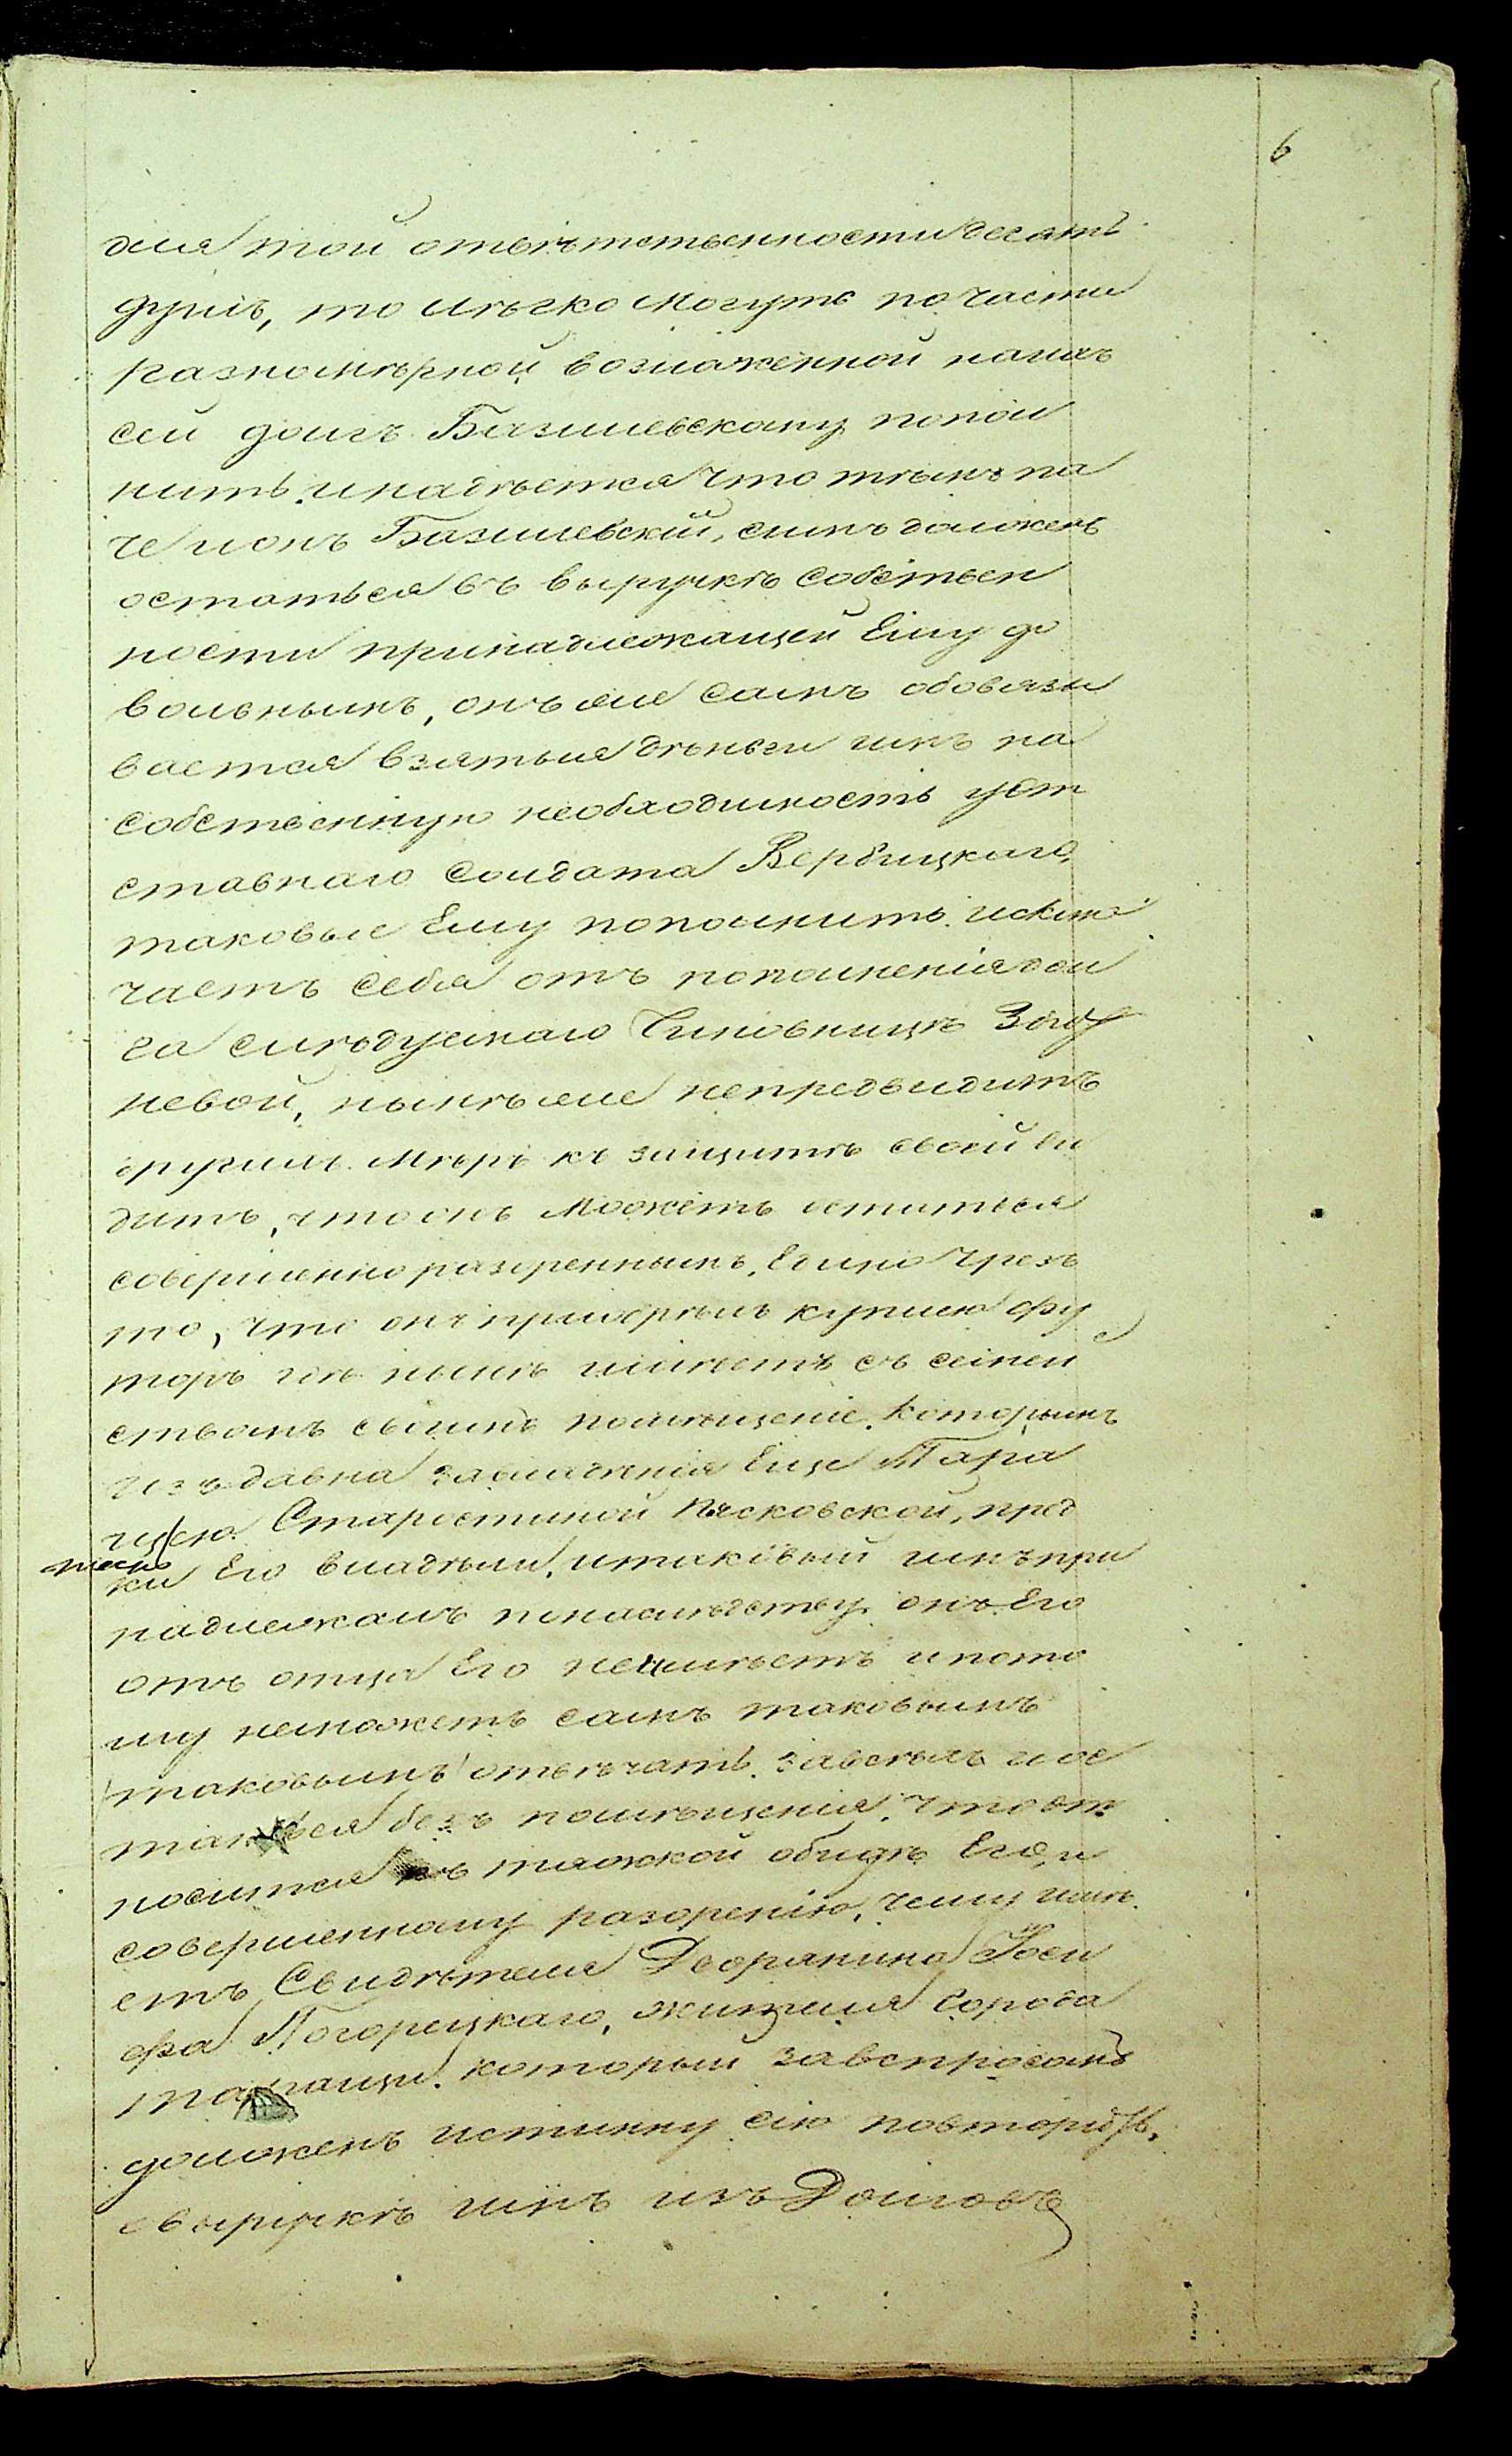 6
для той ответственности десять
душъ, то легко могутъ по части
разномѣрной возложенной на нихъ
сей долгъ Базилевскому попол
нить, и надѣется что тѣмъ па
че и онъ Базилевскій, симъ долженъ
остаться въ выручкѣ собствен
ности принадлежащей Ему до
вольнымъ, онъ же самъ обовязы
вается взятыя деньги имъ на
собственную необходимость у от
ставнаго солдата Вербицкаго,
таковые Ему пополнить. исклю
чаетъ себя отъ пополненія дол
га слѣдуемаго Чиновницѣ
невой, нынѣ же непредвидитъ
другихъ мѣръ къ защитѣ своей ви
дитъ, что онъ можетъ остаться
совершенно разореннымъ, Едино чрезъ
то, что онъ пріобрѣлъ куплею фу
торъ гдѣ нынѣ имѣетъ съ семей
ствомъ своимъ помѣщеніе, которымъ
изъ давна завладенія Еще Тара
щею Старостиной Лясковской, пред
ки Его владѣли, и таковый имъ при
надлежалъ по наслѣдству онъ Его
отъ отца Его неимѣетъ и пото
му неможетъ самъ таковымъ
таковымъ отвѣчать за всѣхъ и ос
таться безъ помѣщенія, что от
носится къ тяжкой обидѣ Его, и
совершенному разоренію, чему имѣ
етъ Свидѣтеля Дворянина Іоси
фа Погорецкаго, жителя города
таращи, который за вспросомъ
долженъ истинну сію повторить,
о выручкѣ имъ изъ Долговъ